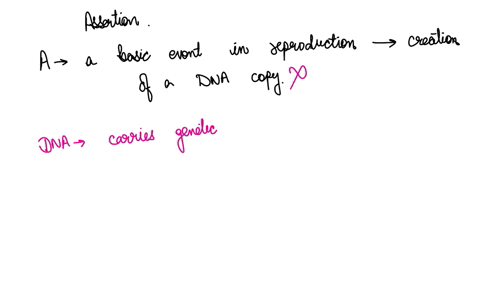 Assertion.
A → a basic event in reproduction → creation
of a DNA copy. X
DNA → carries genetic